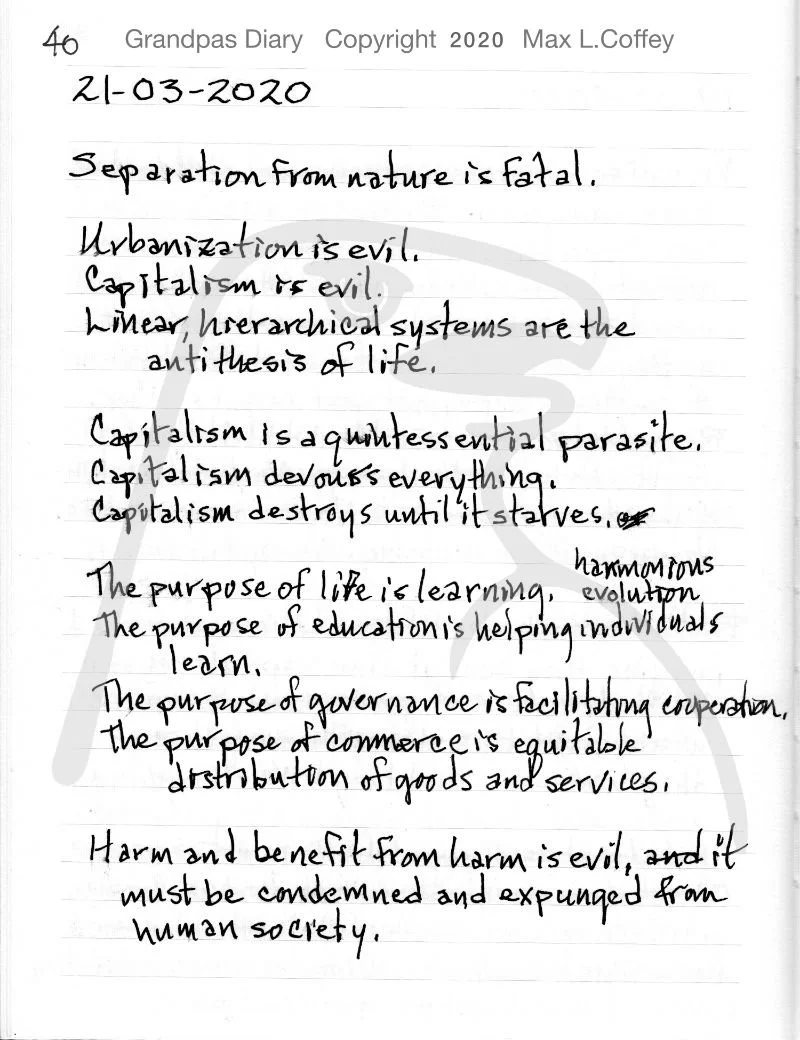 40 Grandpas Diary Copyright 2020 Max L.Coffey
21-03-2020
Separation from nature is fatal.
Urbanization is evil.
Capitalism is evil.
Linear, hierarchical systems are the
antithesis of life.
Capitalism is a quintessential parasite.
Capitalism devours everything.
Capitalism destroys until it starves.
harmonious
The purpose of life is learning. evolution
The purpose of education is helping individuals
learn.
The purpose of governance is facilitating cooperation.
The purpose of commerce is equitable
distribution of goods and services.
Harm and benefit from harm is evil, and it
must be condemned and expunged from
human society.